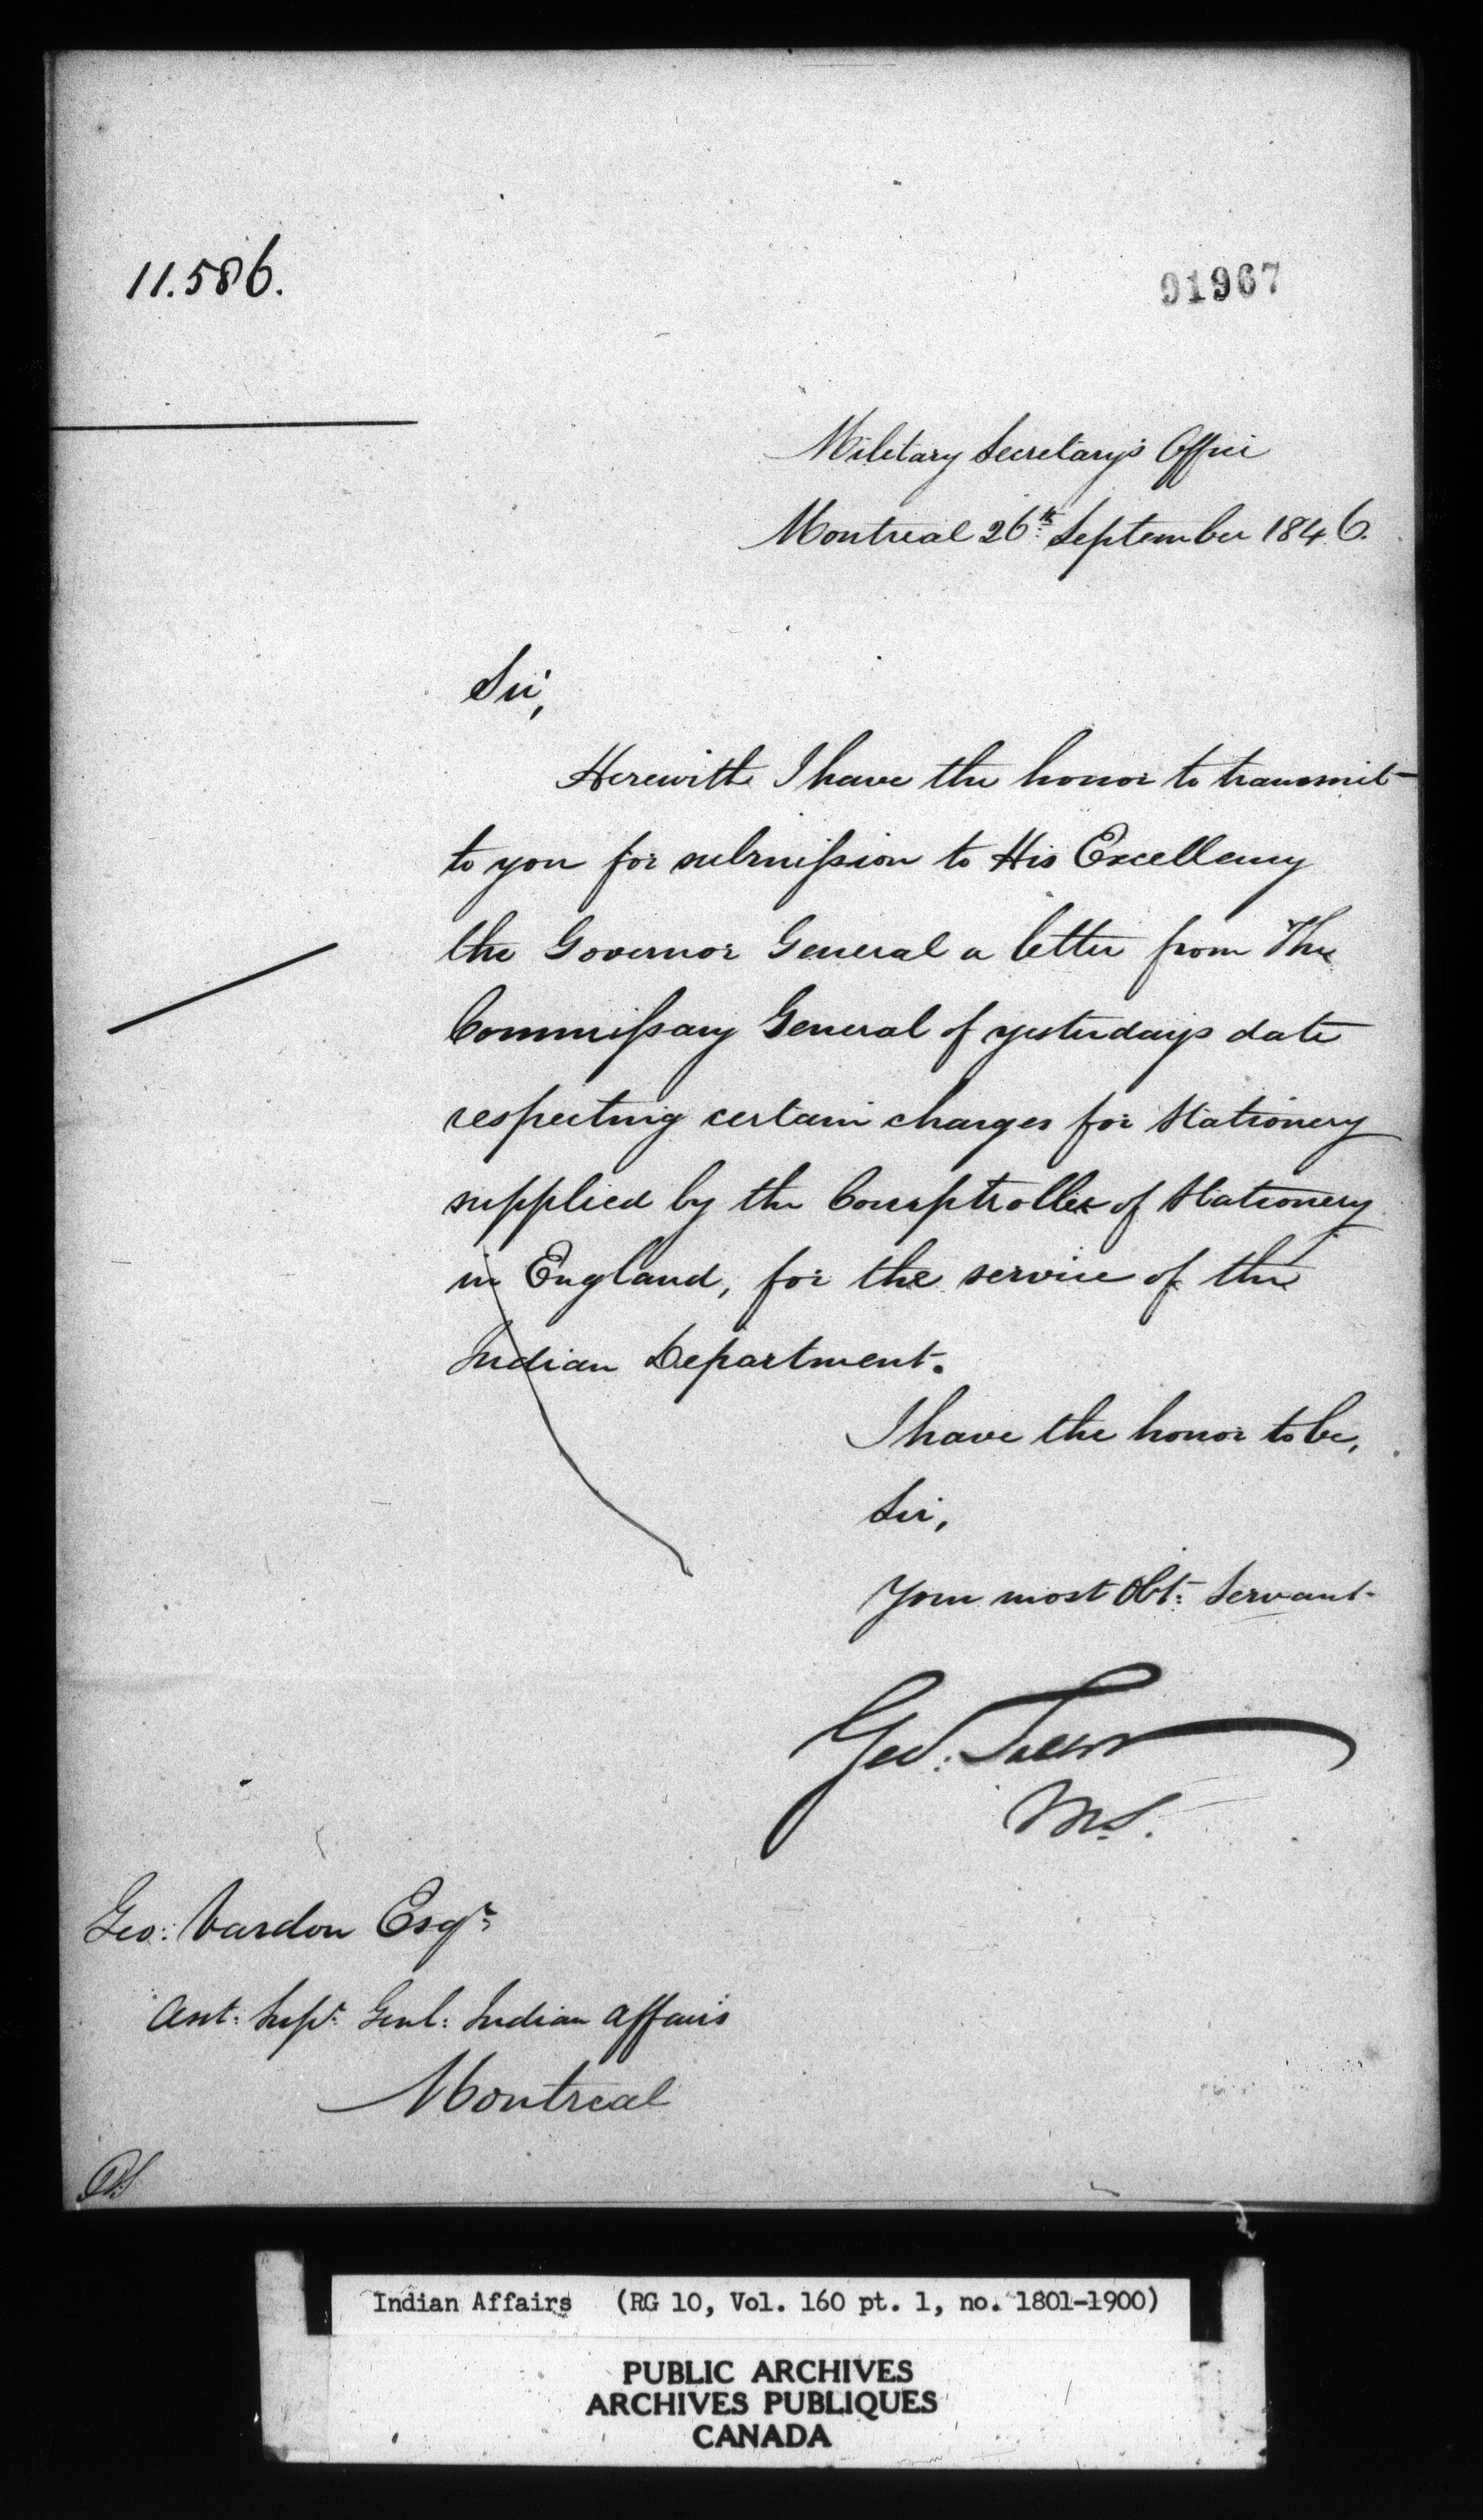 11.586.
91967
Military Secretary's Office
Montreal 26th September 1846.
Sir,
Herewith I have the honor to transmit
to you for submission to His Excellency
the Governor General a letter from The
Commissary General of yesterdays date
respecting certain charges for Stationery
supplied by the Comptroller of Stationery
in England, for the service of the
Indian Department.
I have the honor to be,
Sir,
Your most Obt: Servant
Geo:
M.S.
Geo: Vardon Esqr:
Asst: Supt: Genl: Indian Affairs
Montreal
Indian Affairs (RG 10, Vol. 160 pt. 1, no. 1801-1900)
PUBLIC ARCHIVES
ARCHIVES PUBLIQUES
CANADA